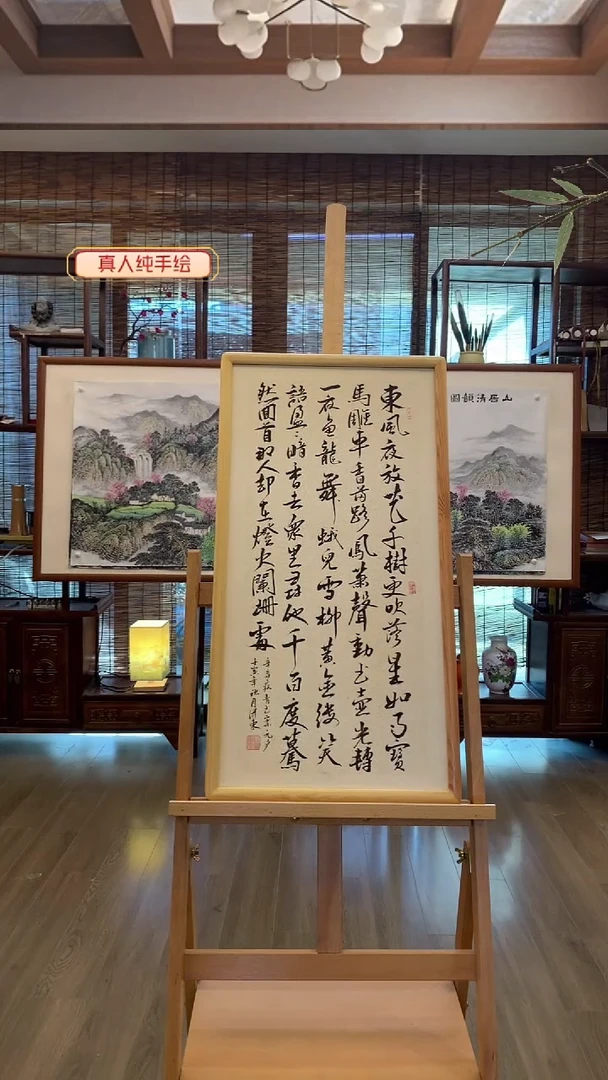 真人纯手绘
山居清韻圖
東風夜放花千樹更吹落星如雨寶
馬雕車香滿路鳳簫聲動玉壺光轉
一夜魚龍舞蛾兒雪柳黃金縷笑
語盈〻暗香去衆里尋他千百度驀
然回首那人却在燈火闌珊處
辛棄疾青玉案元夕
壬寅年秋月